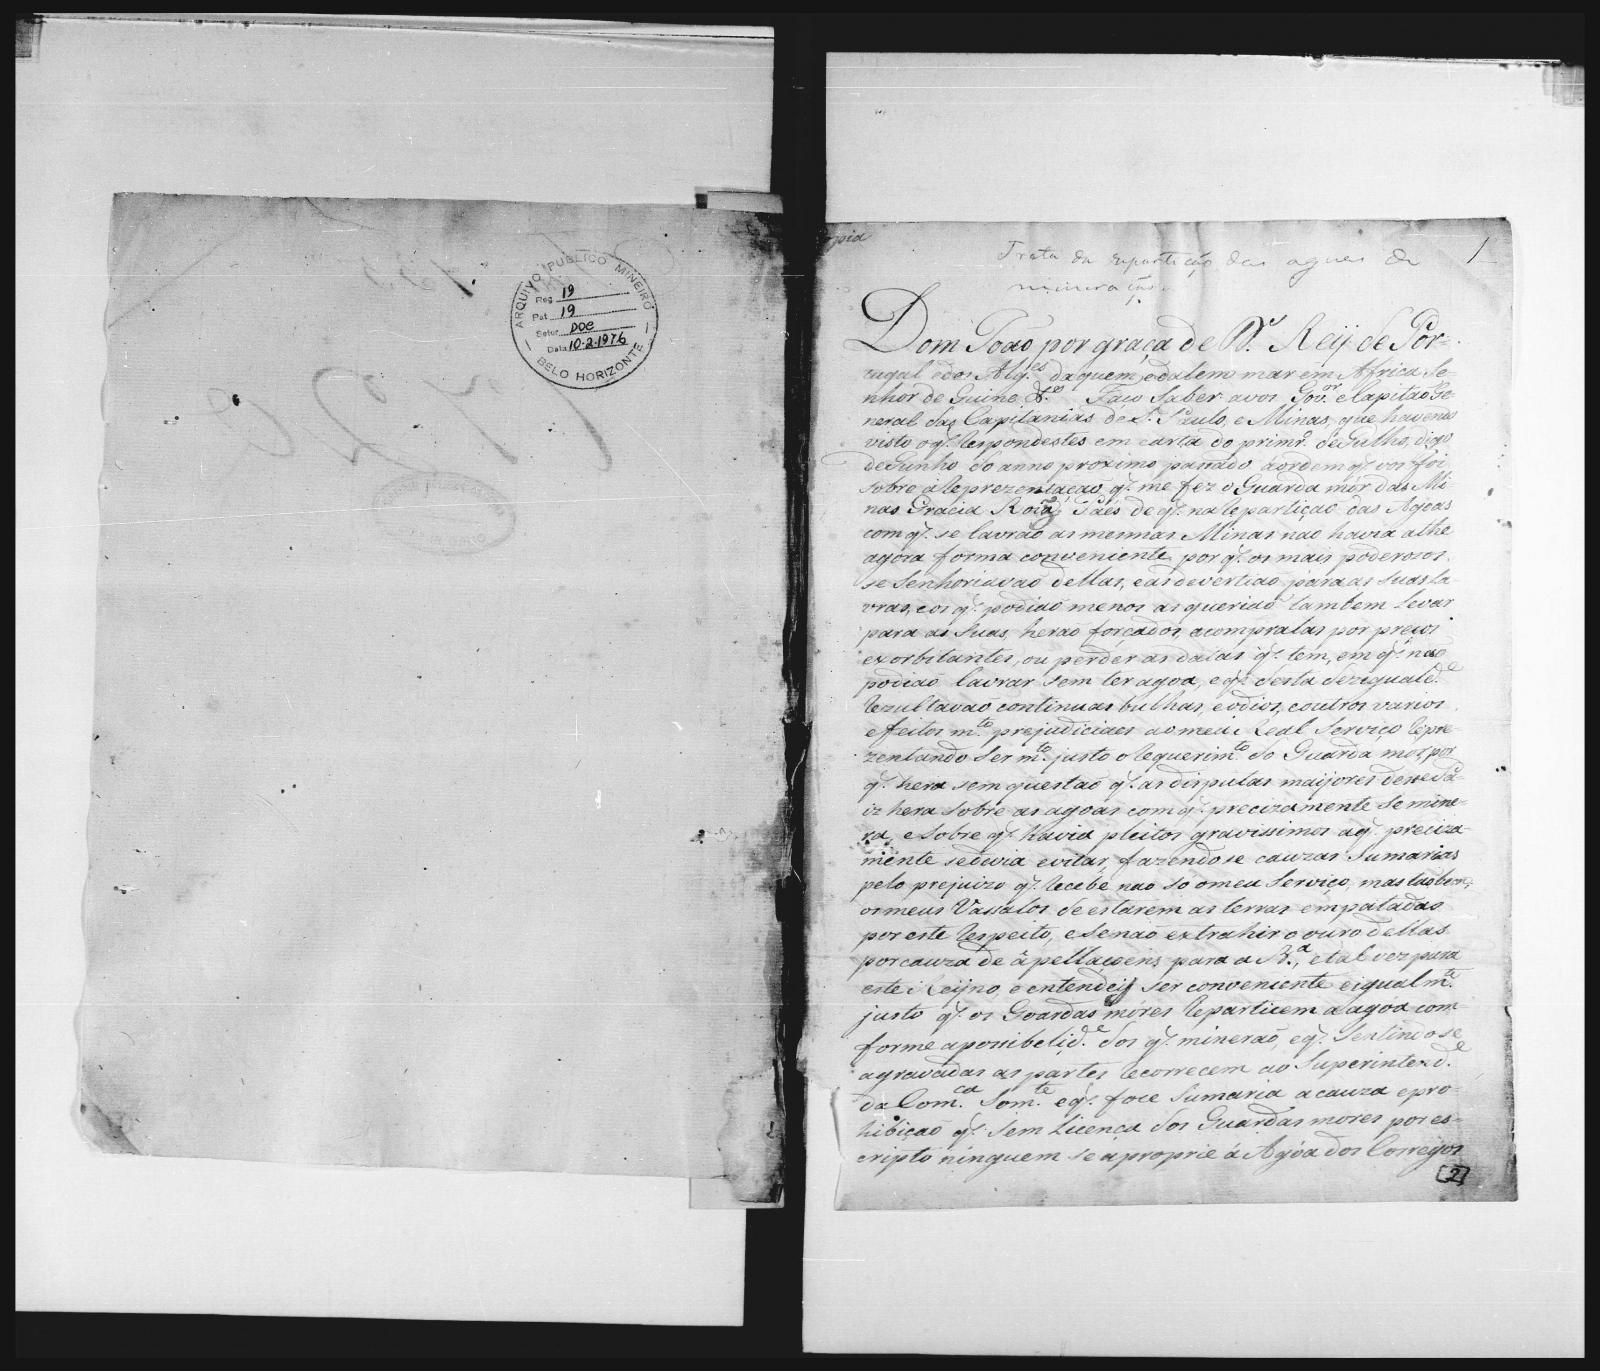 ARQUIVO PUBLICO MINEIRO
Reg 19
Pat 19
Setor DOC
Data 10-2-1976
BELO HORIZONTE
1720
opia
Trata da repartição das aguas de
mineração
1
Dom João por graça de D.s Reij de Por-
tugal edos Alg.es daquem, edalem mar em Africa Se-
nhor de Guine &.a Faço Saber avos Gov.or eCapitaõ Ge-
neral das Capitanias de S. Paulo, e Minas, que havendo
visto oq.' Respondestes em carta do primr.o de Julho, digo
deJunho do anno proximo passado áordem q.' vos foi
sobre aReprezentaçaõ q.' me fez o Guarda mór das Mi-
nas Gracia Roiz Paes de q.' naRepartiçaõ das Agoas
com q.' se lavraõ as mesmas Minas naõ havia athe
agora forma conveniente, por q.' os mais poderosos
se Senhoriavaõ dellas, easdevertiaõ para as suas la-
vras, eos q.' podiaõ menos as queriaõ tambem levar
para as suas, heraõ forçados acompralas por preços
exorbitantes, ou perder as datas q.' tem, em q.' naõ
podiaõ lavrar sem ter agoa, eq.' desta dezigualde.
Rezultavaõ continuas bulhas, eodios, eoutros varios
efeitos m.to prejudiciaes aomeu Real Serviço Repre-
zentando Ser m.to justo oRequerim.to do Guarda mor por
q.' hera sem questaõ q.' as disputas maijores
hera sobre as agoas com q.' precizamente se mine-
ra, eSobre q.' havia pleitos gravissimos aq.' preciza-
mente sedevia evitar, fazendose cauzas Sumarias
pelo prejuizo q.' Recebe naõ só omeu Serviço, mas tãobem
osmeus Vassalos deestarem as terras empatadas
poreste Respeito, eSenaõ extrahir o ouro dellas
porcauza de apellaçoens para a B.a, etal vez para
este Reijno, e entendeis ser conveniente eigualm.te
justo q.' os Goardas móres Repartissem aagoa com-
forme aposibelid.e dos q.' mineraõ, eq.' Sentindose
agravadas as partes Recorrecem ao Superintend.e
da Com.ca Som.te eq.' foce Sumaria acauza epro-
hibiçaõ q.' sem Licença dos Guardas mores por es-
cripto ninguem se aproprie á Agóa dos Corregos
[2]